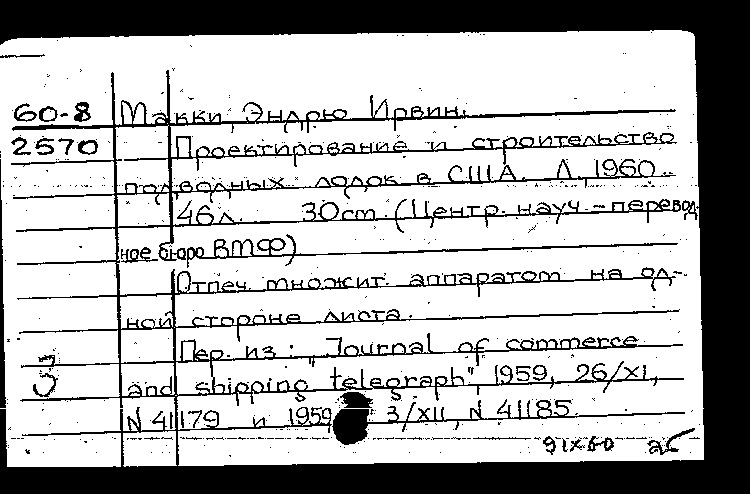 60-8 Макки, Эндрю Ирвин.
2570 Проектирование и строительство
подводных лодок в США. Л., 1960.
46л. 30cm (Центр. науч-перевод
ное бюро ВМФ)
Отпеч. множит. аппаратом на од-
ной стороне листа.
Пер. из: „Journal of commerce
and shipping telegraph", 1959, 26/XI,
N 41179 и 1959, 3/XII, N 41185.
9 IX 60